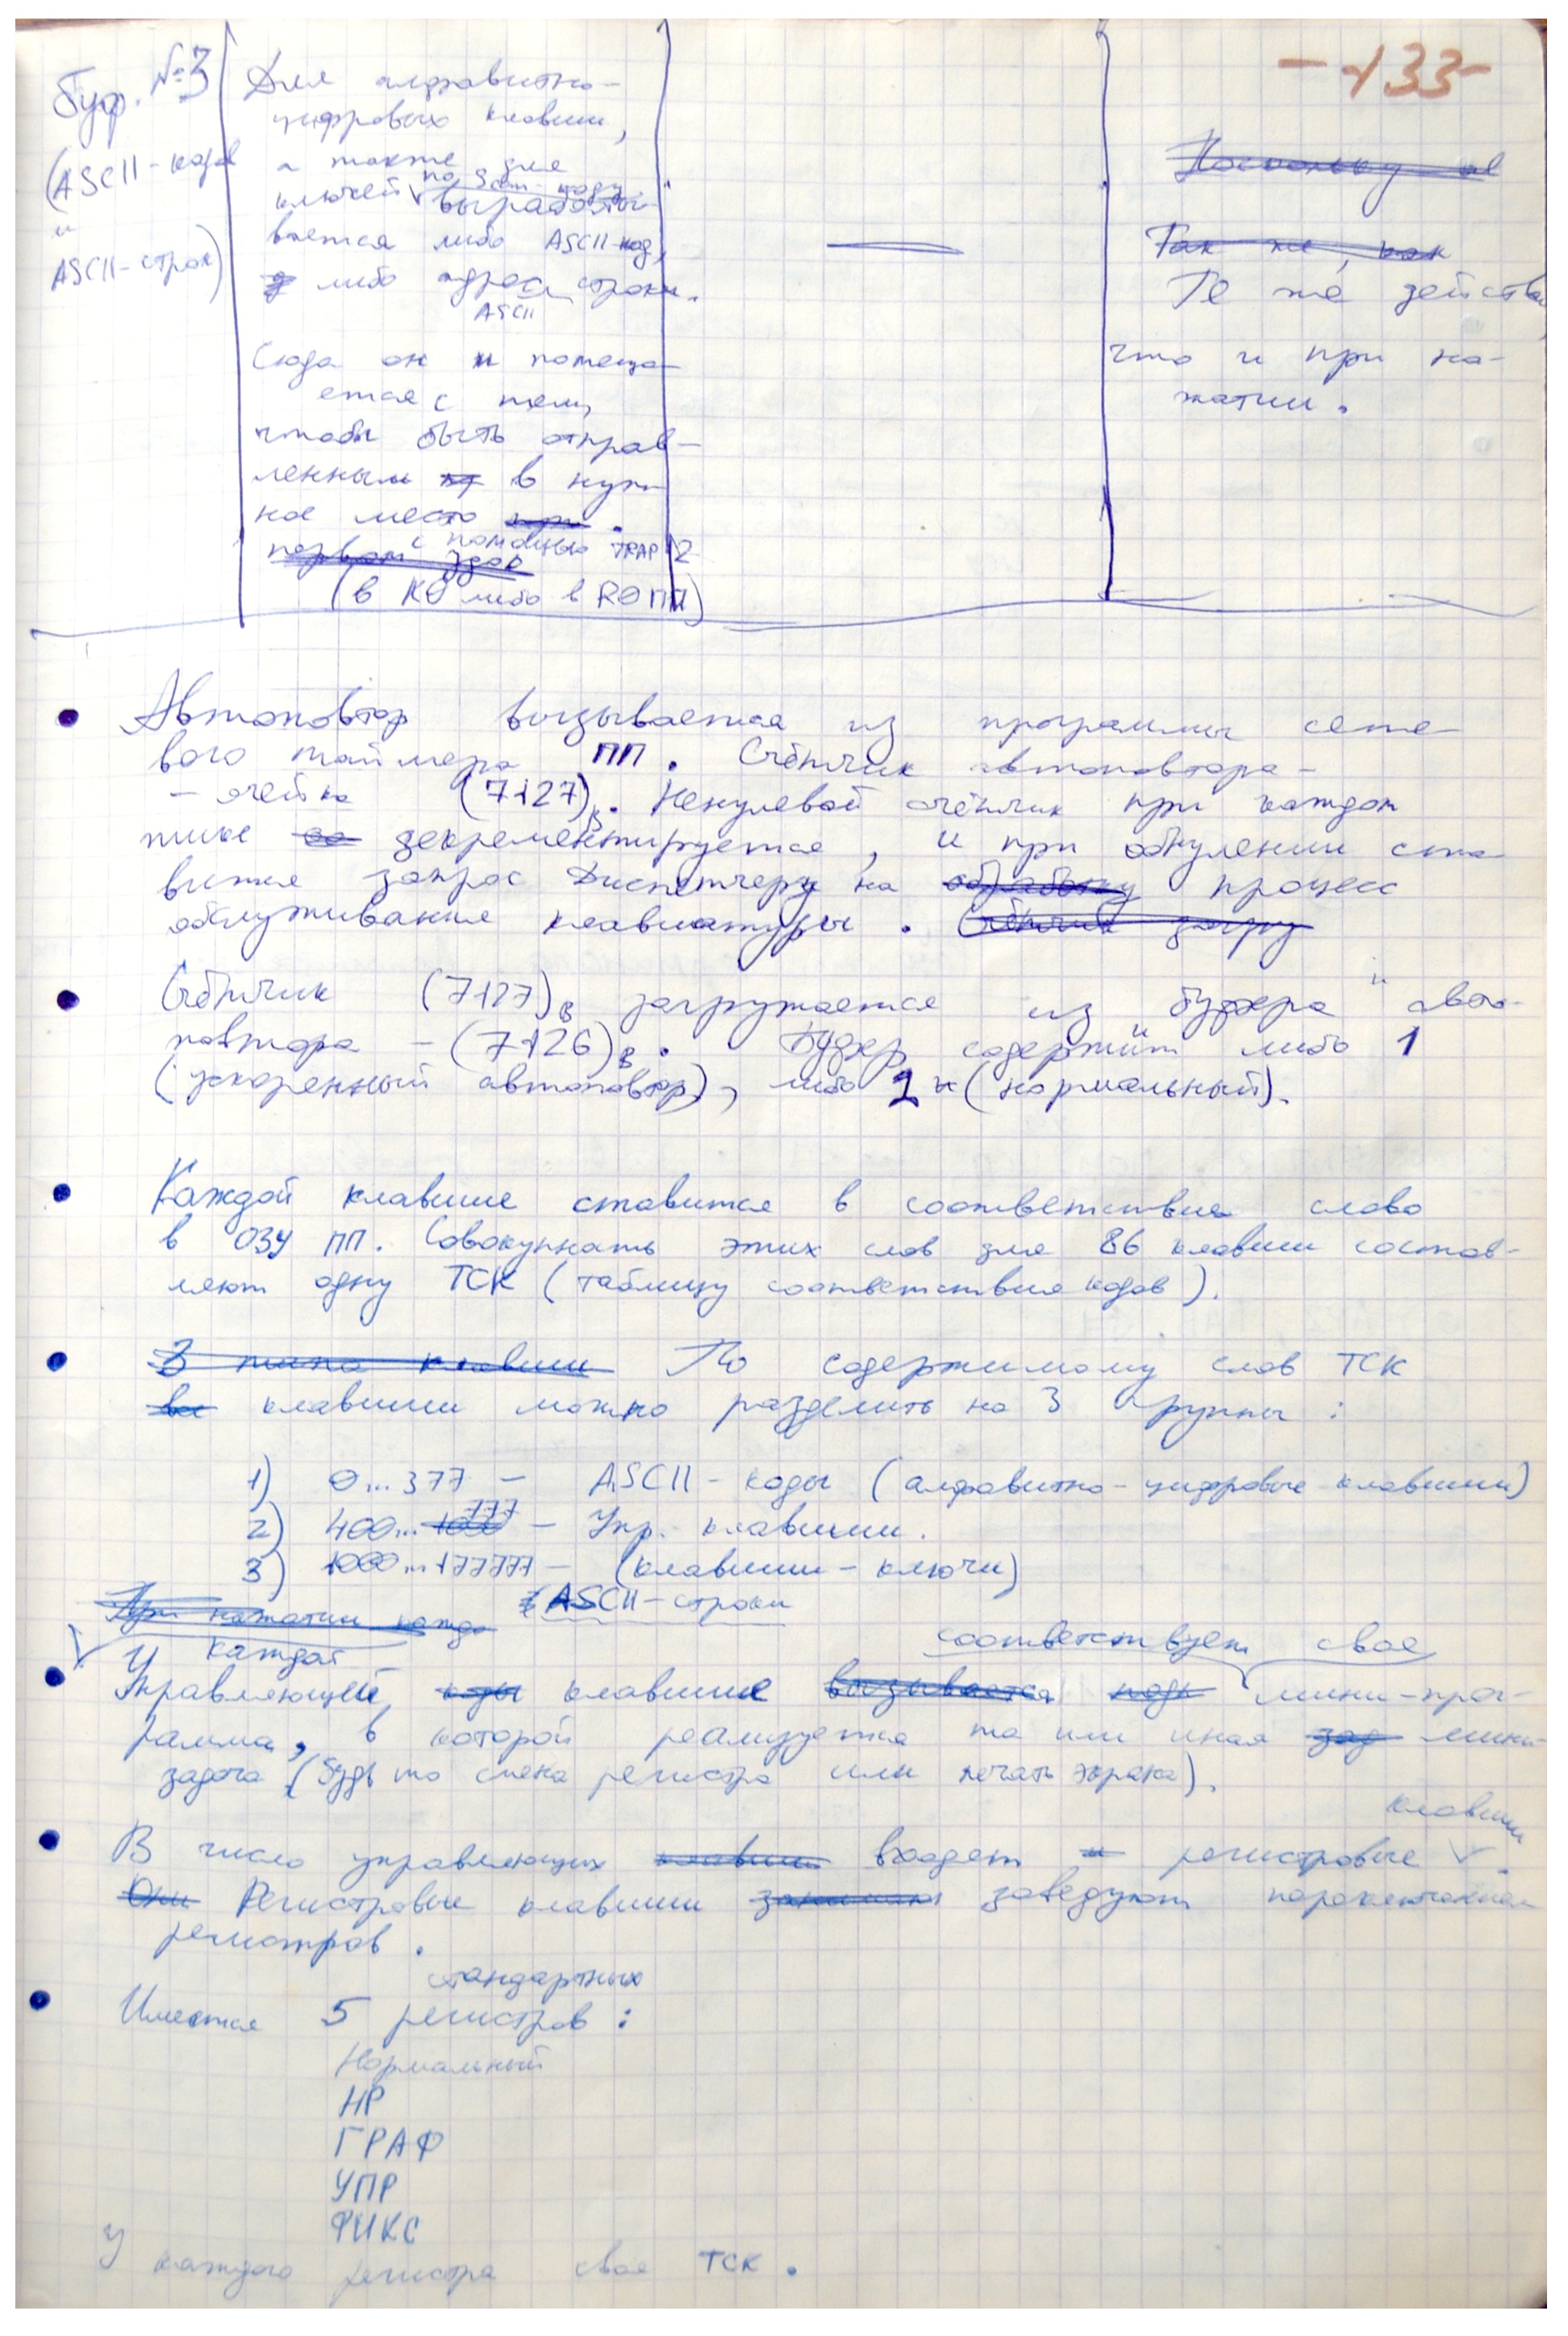 -133-
Буф. №3
(ASCII-коды
и
ASCII-строк)
Для алфавитно-
цифровых клавиш,
а также для
ключей по Scan-коду вырабаты-
вается либо ASCII-код,
либо адрес ASCII строки.
Сюда он и помеща-
ется с тем,
чтобы быть отправ-
ленным в нуж-
ное место .
с помощью TRAP 12
(в КΘ либо в RΘ ПП)
Поскольку
Так же, как
Те же действия,
что и при на-
жатии.
Автоповтор вызывается из программы сете-
вого таймера ПП. Счётчик автоповтора -
- ячейка (7127)8. Ненулевой счётчик при каждом
тике декрементируется, и при обнулении ста-
вится запрос Диспетчеру на обработку процесс
обслуживания клавиатуры. Счётчик загру
Счётчик (7127)8 загружается из буфера авто-
повтора - (7126)8. Буфер содержит либо 1
(ускоренный автоповтор), либо 2 (нормальный).
Каждой клавише ставится в соответствие слово
в ОЗУ ПП. Совокупность этих слов для 86 клавиш состав-
ляют одну ТСК (таблицу соответствия кодов).
3 типа клавиш По содержимому слов ТСК
все клавиши можно разделить на 3 группы :
1) 0...377 - ASCII-коды (алфавитно-цифровые клавиши)
2) 400...1000 777 - Упр. клавиши.
3) 1000...177777 - (клавиши-ключи)
ASCII-строки
При нажатии каждо
У каждой соответствует свое
Управляющей коды клавише вызывается мини-прог-
рамма, в которой реализуется та или иная зад мини-
задача (будь то смена регистра или печать экрана).
В число управляющих клавиш входят и регистровые клавиши.
Они Регистровые клавиши занимаются заведуют переключением
регистров.
Имеется 5 стандартных регистров :
Нормальный
НР
ГРАФ
УПР
ФИКС
У каждого регистра своя ТСК .